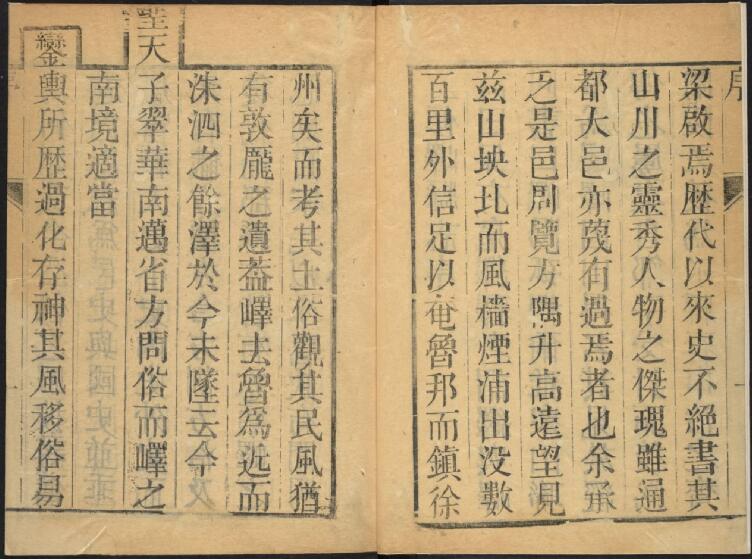 序
梁啟焉歷代以來史不絕書其
山川之靈秀人物之傑瑰雖通
都大邑亦蔑有過焉者也余承
之是邑問覽方隅升高遠望見
茲山坱圠而風檣煙浦出没數
百里外信足以奄魯邦而鎮徐
州矣而考其土俗觀其民風猶
有敦龐之遺葢嶧去魯爲近而
洙泗之餘澤於今未墜云今
聖天子翠華南邁省方問俗而嶧之
南境適當
鑾輿所歷過化存神其風移俗易